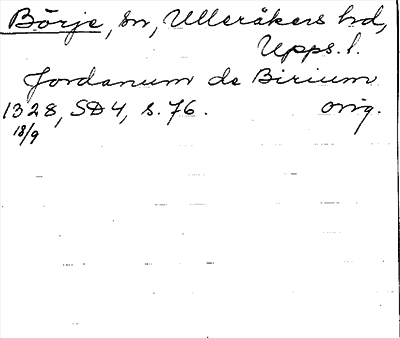 Börje, sn, Ulleråkers hd,
Upps. l.
Jordanum de Birium
1328, SD4, s. 76. orig.
18/9